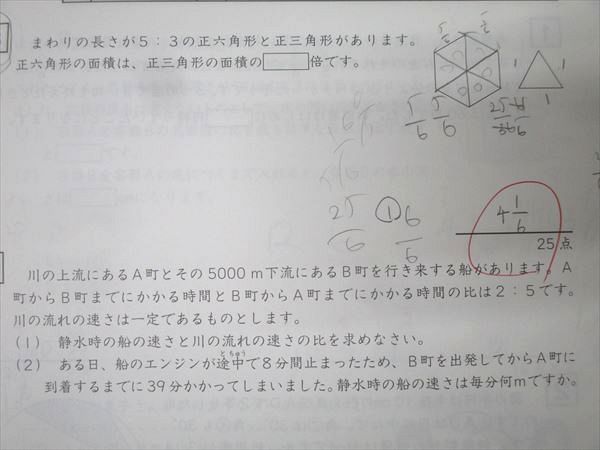 まわりの長さが5:3の正六角形と正三角形があります。
正六角形の面積は、正三角形の面積の 倍です。
1 1
1
5/6 5/6
25/6 ① 6/6
4 1/6
25点
川の上流にあるA町とその5000m下流にあるB町を行き来する船があります。A
町からB町までにかかる時間とB町からA町までにかかる時間の比は2:5です。
川の流れの速さは一定であるものとします。
(1) 静水時の船の速さと川の流れの速さの比を求めなさい。
とちゅう
(2) ある日、船のエンジンが途中で8分間止まったため、B町を出発してからA町に
到着するまでに39分かかってしまいました。静水時の船の速さは毎分何mですか。